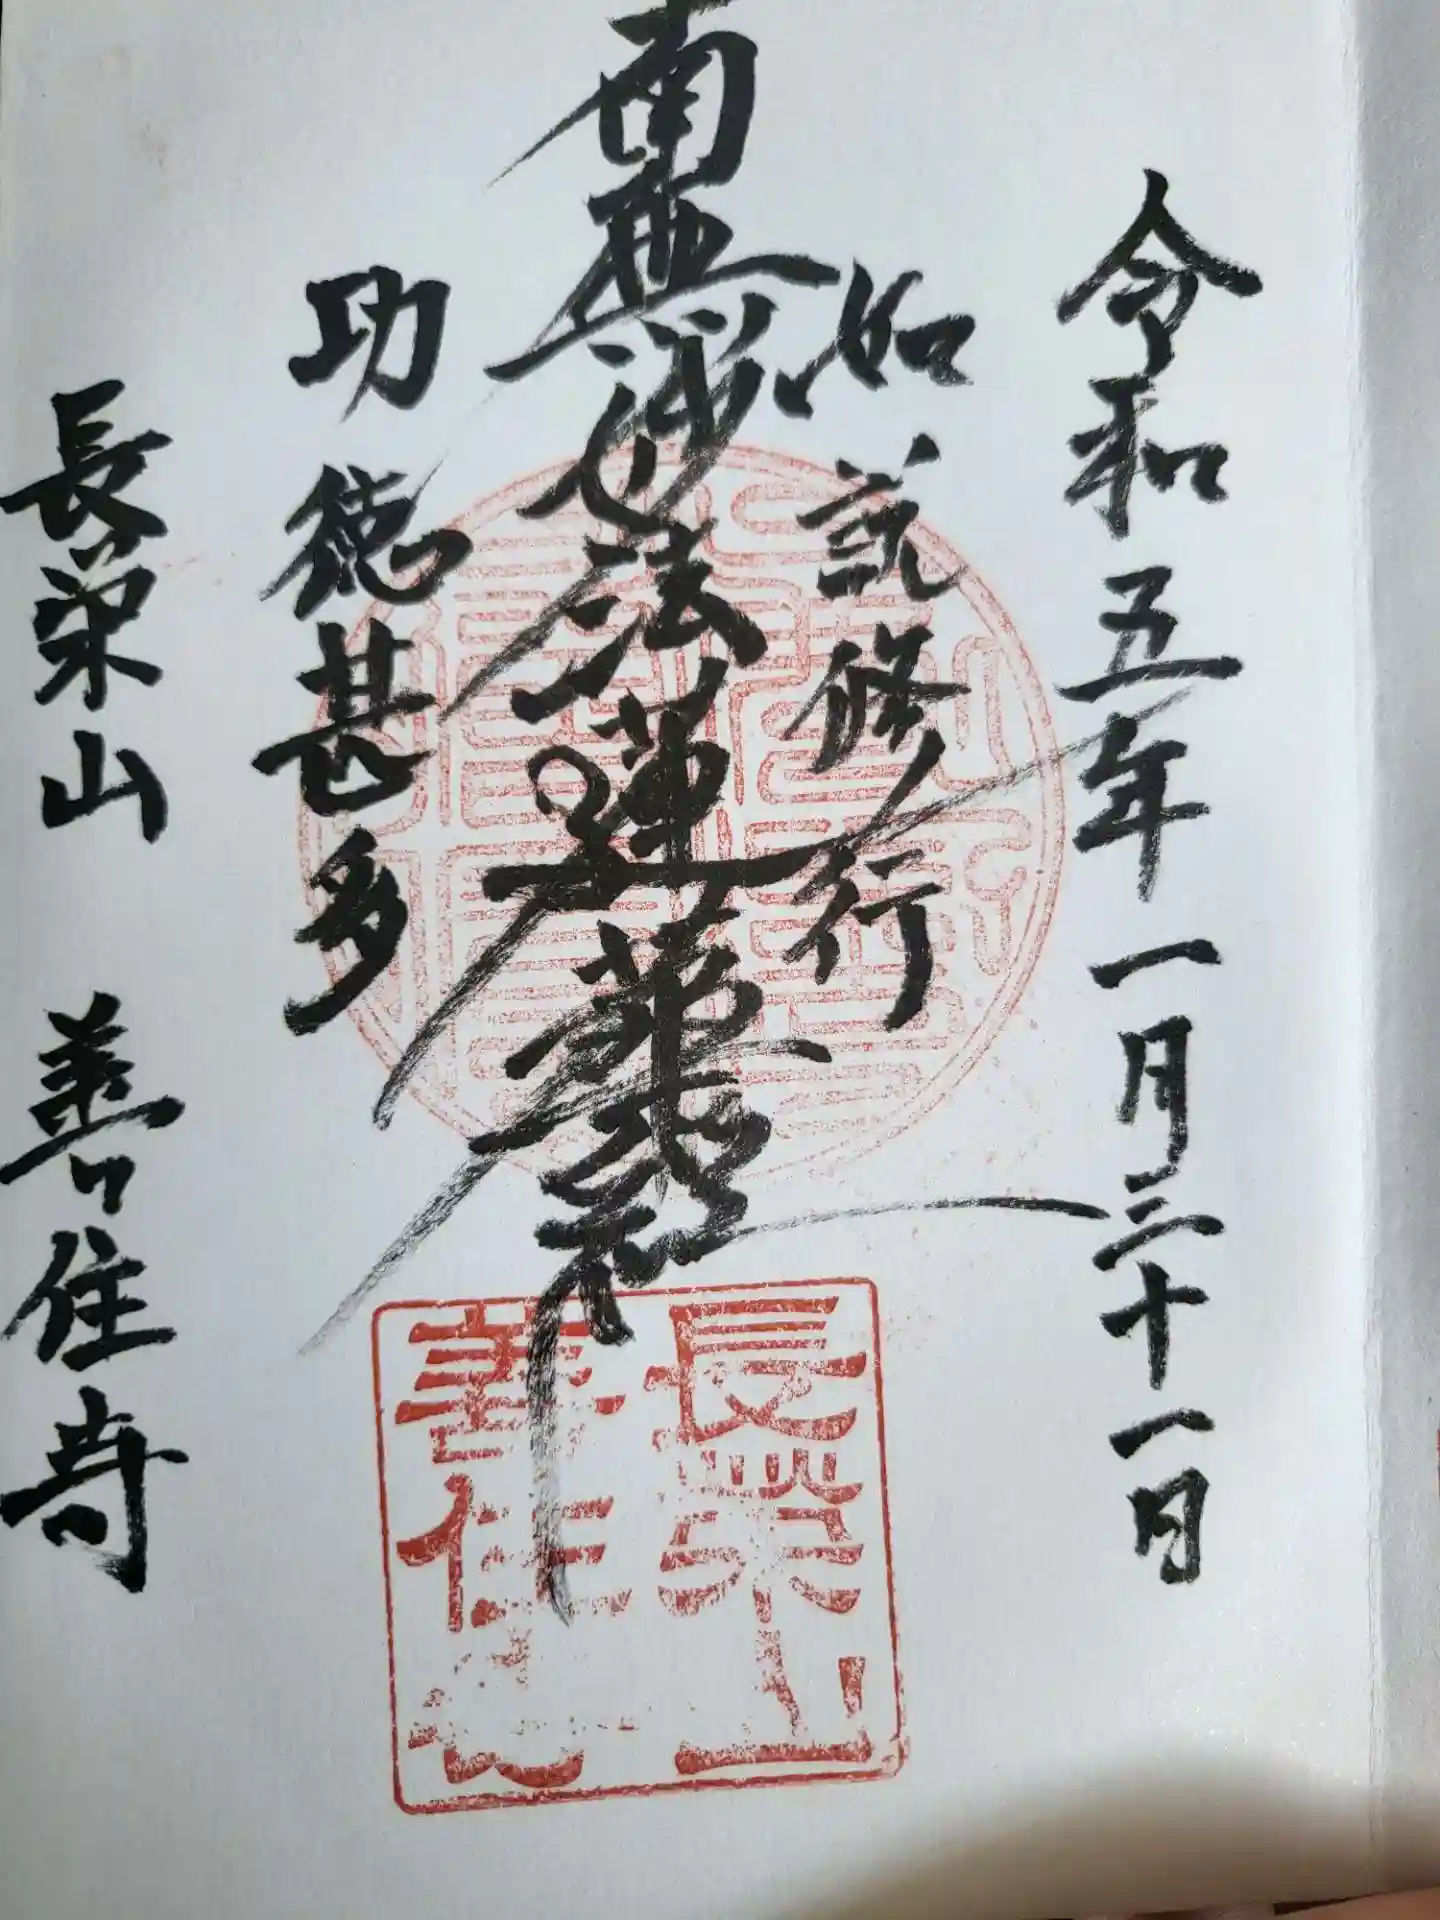 令和五年一月三十一日
如説修行
南無妙法蓮華経
功徳甚多
長栄山 善住寺
長榮山
善住寺